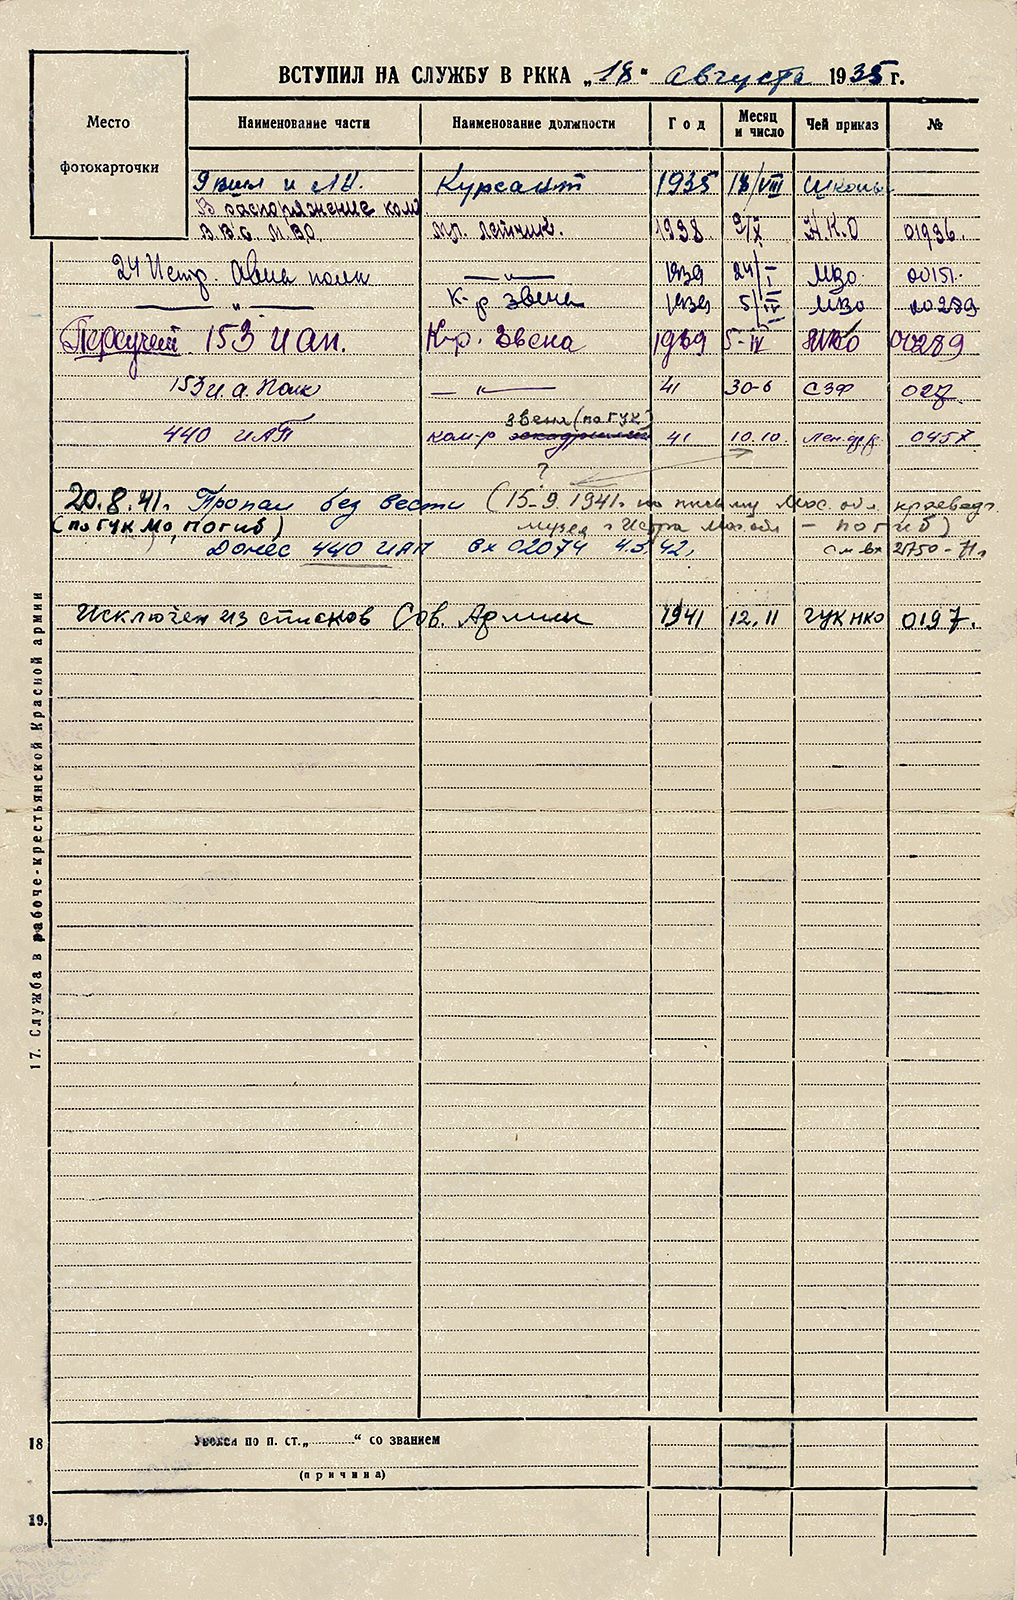 ВСТУПИЛ НА СЛУЖБУ В РККА „18“ августа 1935 г.
Место
фотокарточки
Наименование части
Наименование должности
Год
Месяц и число
Чей приказ
№
Курсант 1935 18/VIII Школы
В распоряжение ком
В.В.С. М.В.О. мл. летчик. 1938 9/X Н.К.О 01936.
24 Истр. Авиа полк —"— 1939 24/I МВО 00151.
—"— К-р звена 1939 5/IV МВО 00289
Переучет 153 И ап. К-р. Звена 1939 5-IV МВО 00289
153 И. а. Полк —"— 41 30-6 СЗФ 027
звена (по ГУК)
440 ИАП ком-р эскадрильи 41 10.10. Лен.фр. 0457
?
20.8.41. Пропал без вести (15.9.1941г. по письму Мос. обл. краеведч.
(по ГУК МО, погиб) музея г Истра Мос. обл – погиб)
Донес 440 ИАП вх 02074 4.3.42. см вх 21750-71г
Исключен из списков Сов. Армии 1941 12.11 ГУК НКО 0197.
17. Служба в рабоче-крестьянской Красной армии
18 Уволен по п. ст. „ “ со званием
(причина)
19.